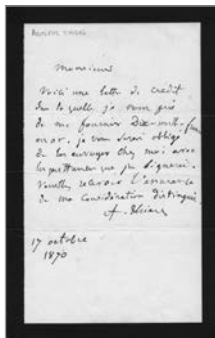 ADOLPHE THIERS
Monsieur
Voici une lettre de crédit
sur laquelle je vous prie
de me fournir Dix-mille francs
en or, je vous serai obligé
de les envoyer chez moi avec
que je signerai.
Veuillez recevoir l'assurance
de ma considération distinguée
A. Thiers
17 octobre
1870